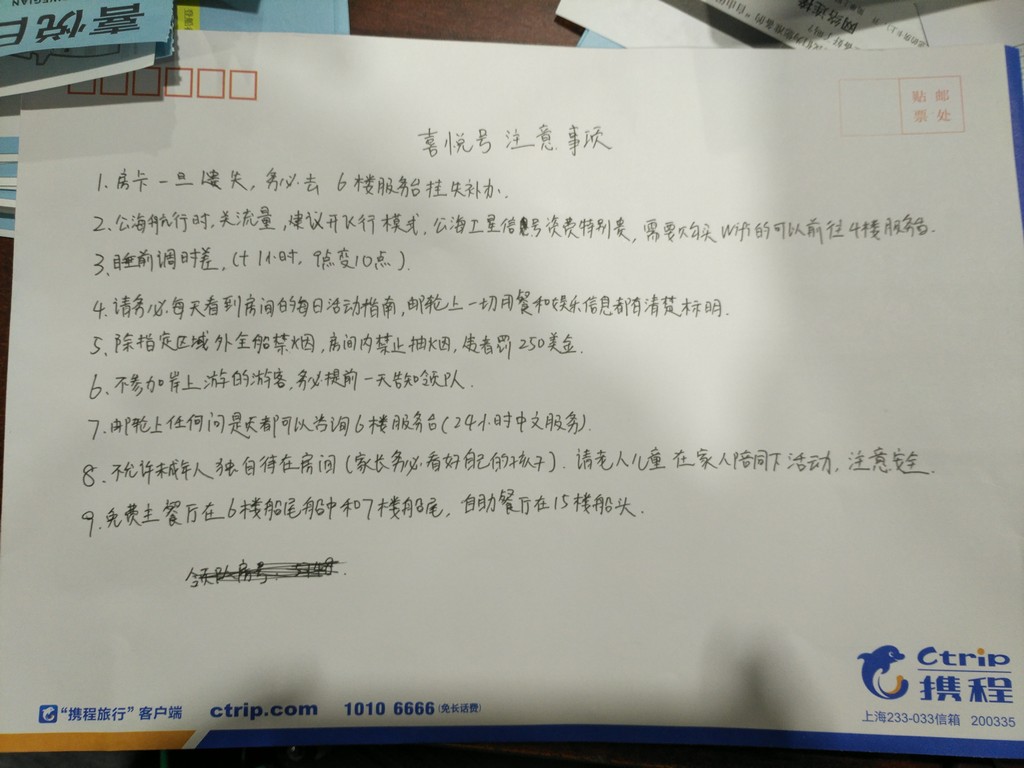 喜悦日
WEGIAN
网络连接
贴 邮
票 处
喜悦号 注意事项
1. 房卡一旦遗失，务必去 6楼服务台挂失补办.
2. 公海航行时，关流量，建议开飞行模式，公海卫星信号资费特别贵，需要购买Wifi的可以前往4楼服务台.
3. 睡前调时差，(+1小时，9点变10点).
4. 请务必每天看到房间的每日活动指南，邮轮上一切用餐和娱乐信息都有清楚标明.
5. 除指定区域外全船禁烟，房间内禁止抽烟，违者罚250美金.
6. 不参加岸上游的游客，务必提前一天告知领队.
7. 邮轮上任何问题都可以咨询6楼服务台(24小时中文服务).
8. 不允许未成年人独自待在房间(家长务必看好自己的孩子). 请老人儿童在家人陪同下活动，注意安全.
9. 免费主餐厅在6楼船尾船中和7楼船尾，自助餐厅在15楼船头.
领队房号:
Ctrip
携程
上海233-033信箱 200335
“携程旅行”客户端 ctrip.com 1010 6666(免长话费)